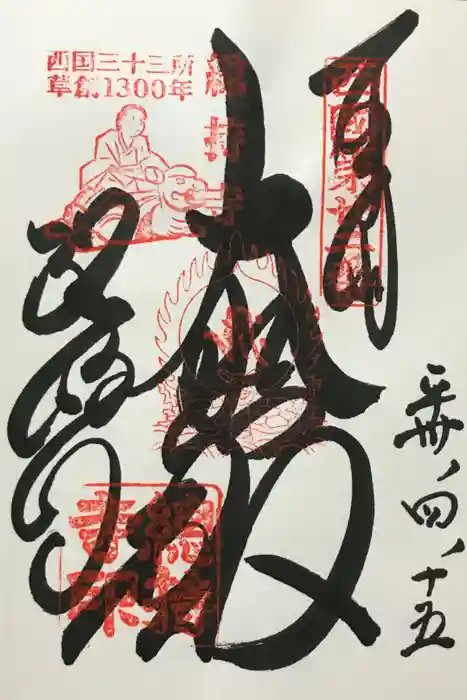 西國第廿二番
平卅、四、十五
大悲殿
總持寺
西国三十三所
草創1300年
總持寺
總持
寺印